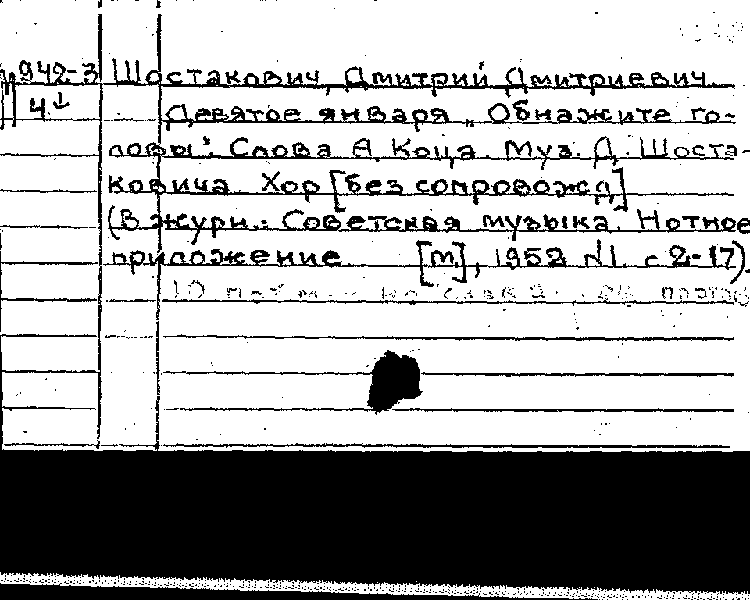 942-3 Шостакович, Дмитрий Дмитриевич.
4↓ Девятое января „Обнажите го-
ловы". Слова А. Коца. Муз. Д. Шоста-
ковича. Хор [без сопровожд.]
(В журн.: Советская музыка. Нотное
приложение. [М.], 1952 №1. с 2-17).